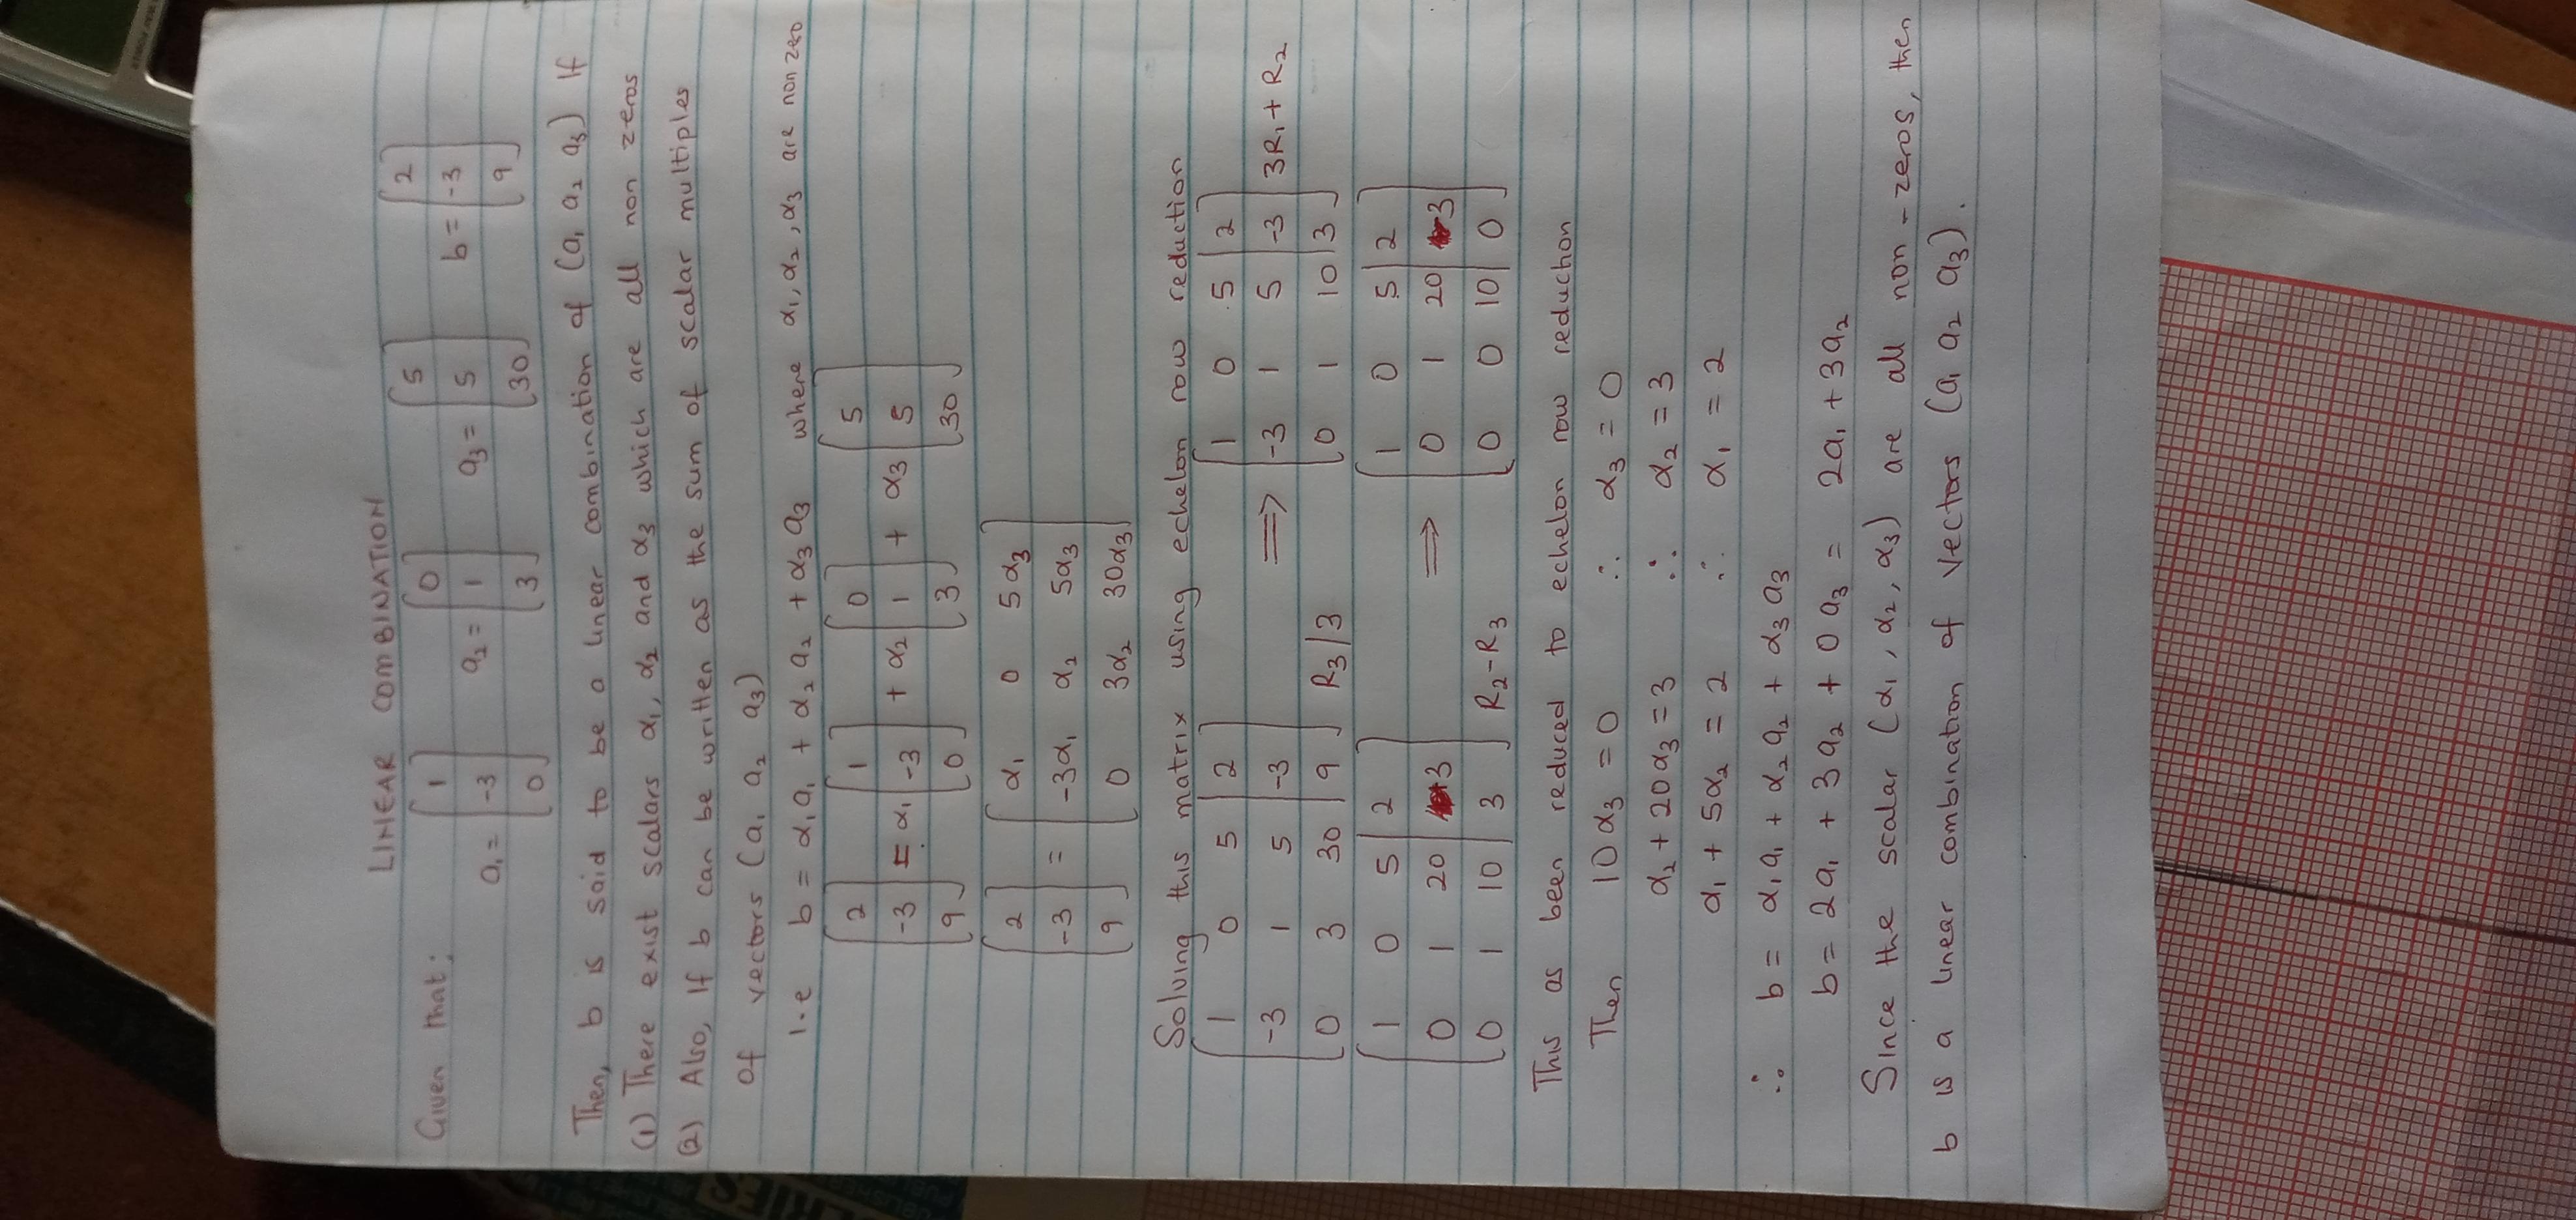 LINEAR COMBINATION
Given that; a₁ = [1 -3 0] a₂ = [0 1 3] a₃ = [5 5 30] b = [2 -3 9]
Then, b is said to be a linear combination of (a₁ a₂ a₃) If
(1) There exist scalars α₁, α₂ and α₃ which are all non zeros
(2) Also, If b can be written as the sum of scalar multiples
of vectors (a₁ a₂ a₃)
i.e b = α₁a₁ + α₂a₂ + α₃a₃ where α₁, α₂, α₃ are non zero
[2 -3 9] = α₁ [1 -3 0] + α₂ [0 1 3] + α₃ [5 5 30]
[2 -3 9] = [α₁ 0 5α₃
-3α₁ α₂ 5α₃
0 3α₂ 30α₃]
Solving this matrix using echelon row reduction
[1 0 5 | 2] [1 0 5 | 2]
-3 1 5 | -3 ⟹ -3 1 5 | -3 3R₁ + R₂
[0 3 30 | 9] R₃/3 [0 1 10 | 3]
[1 0 5 | 2] [1 0 5 | 2]
0 1 20 | 3 ⟹ 0 1 20 | 3
[0 1 10 | 3] R₂-R₃ [0 0 10 | 0]
This as been reduced to echelon row reduction
Then 10α₃ = 0 ∴ α₃ = 0
α₂ + 20α₃ = 3 ∴ α₂ = 3
α₁ + 5α₂ = 2 ∴ α₁ = 2
∴ b = α₁a₁ + α₂a₂ + α₃a₃
b = 2a₁ + 3a₂ + 0a₃ = 2a₁ + 3a₂
Since the scalar (α₁, α₂, α₃) are all non-zeros, then
b is a linear combination of vectors (a₁ a₂ a₃).